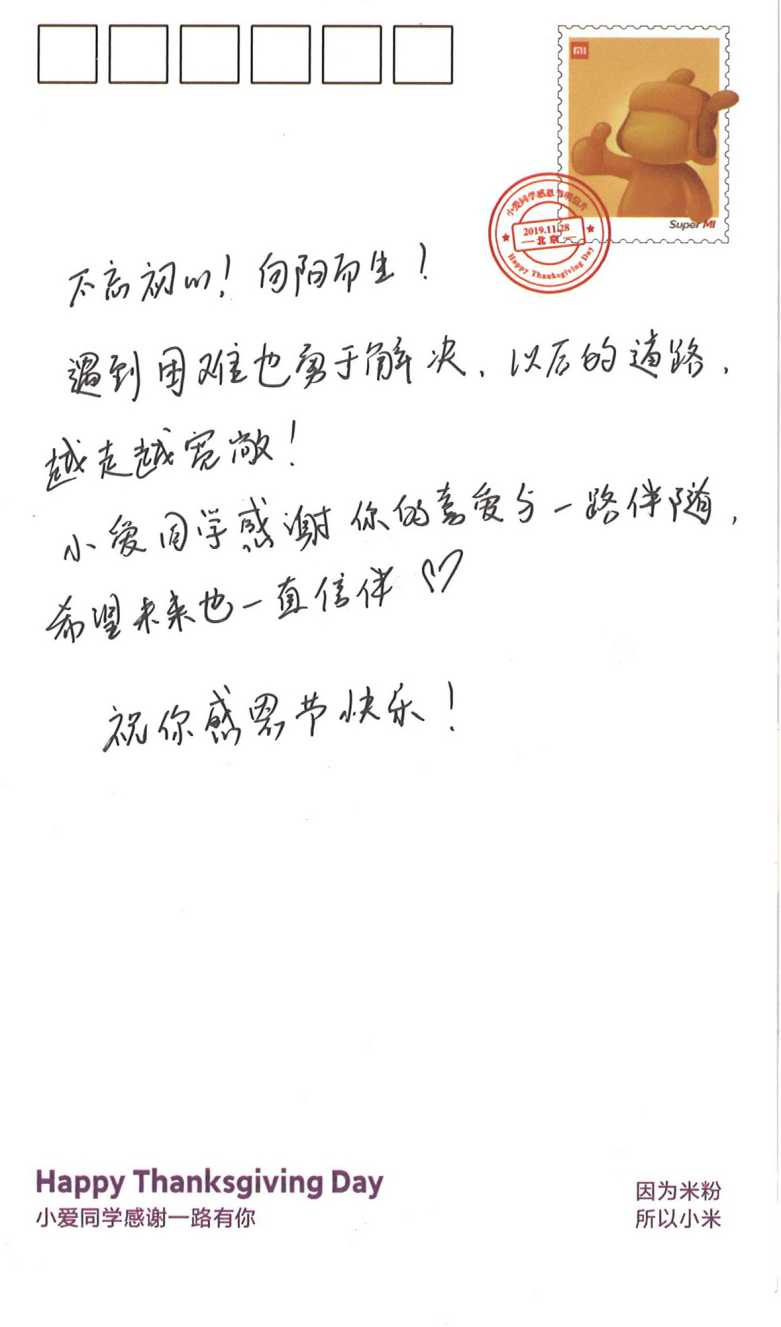 MI
Super MI
小爱同学感恩节明信片
2019.11.28
北京
Happy Thanksgiving Day
不忘初心！向阳而生！
遇到困难也勇于解决、以后的道路，
越走越宽敞！
小爱同学感谢你的喜爱与一路伴随，
希望未来也一直信伴♡
祝你感恩节快乐！
Happy Thanksgiving Day
小爱同学感谢一路有你
因为米粉
所以小米